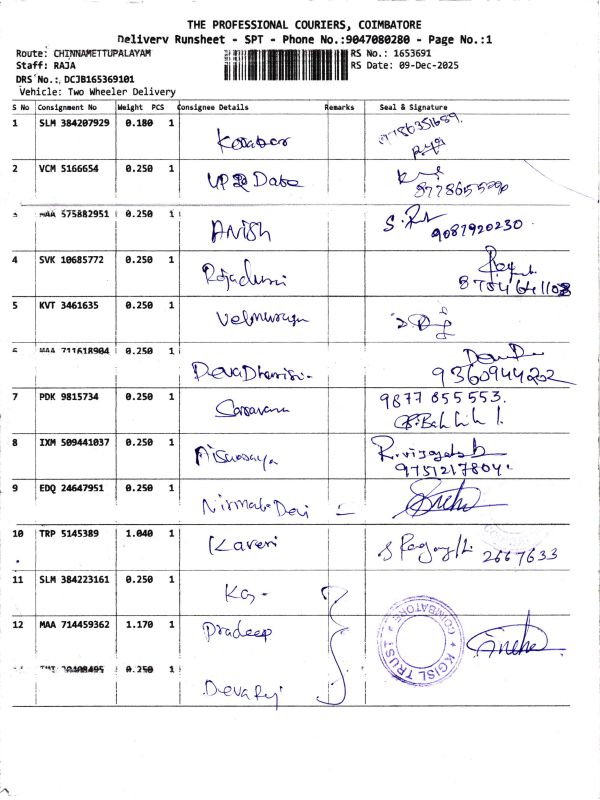 THE PROFESSIONAL COURIERS, COIMBATORE
Delivery Runsheet - SPT - Phone No.:9047080280 - Page No.:1
Route: CHINNAMETTUPALAYAM RS No.: 1653691
Staff: RAJA RS Date: 09-Dec-2025
DRS No.: DCJB165369101
Vehicle: Two Wheeler Delivery
S No Consignment No Weight PCS Consignee Details Remarks Seal & Signature
1 SLM 384207929 0.180 1
2 VCM 5166654 0.250 1 Date
3 MAA 575882951 0.250 1 Anish 9087920230
4 SVK 10685772 0.250 1
5 KVT 3461635 0.250 1 Velmurugan
6 MAA 711618904 0.250 1 DevaDharsini 9360944202
7 PDK 9815734 0.250 1 Saravana 9877 855 553.
8 IXM 509441037 0.250 1 9751217804.
9 EDQ 24647951 0.250 1 Nirmala Devi Sneha
10 TRP 5145389 1.040 1 Kaveri 2667633
11 SLM 384223161 0.250 1
12 MAA 714459362 1.170 1 Pradeep KGISL TRUST * COIMBATORE * Sneha
0.250 1 Devaraj